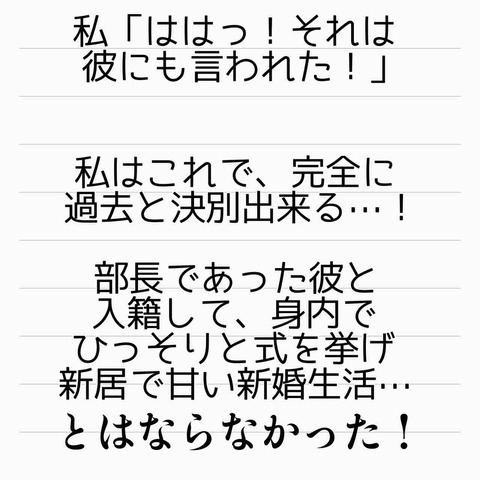 私「ははっ！それは
彼にも言われた！」
私はこれで、完全に
過去と決別出来る…！
部長であった彼と
入籍して、身内で
ひっそりと式を挙げ
新居で甘い新婚生活…
とはならなかった！